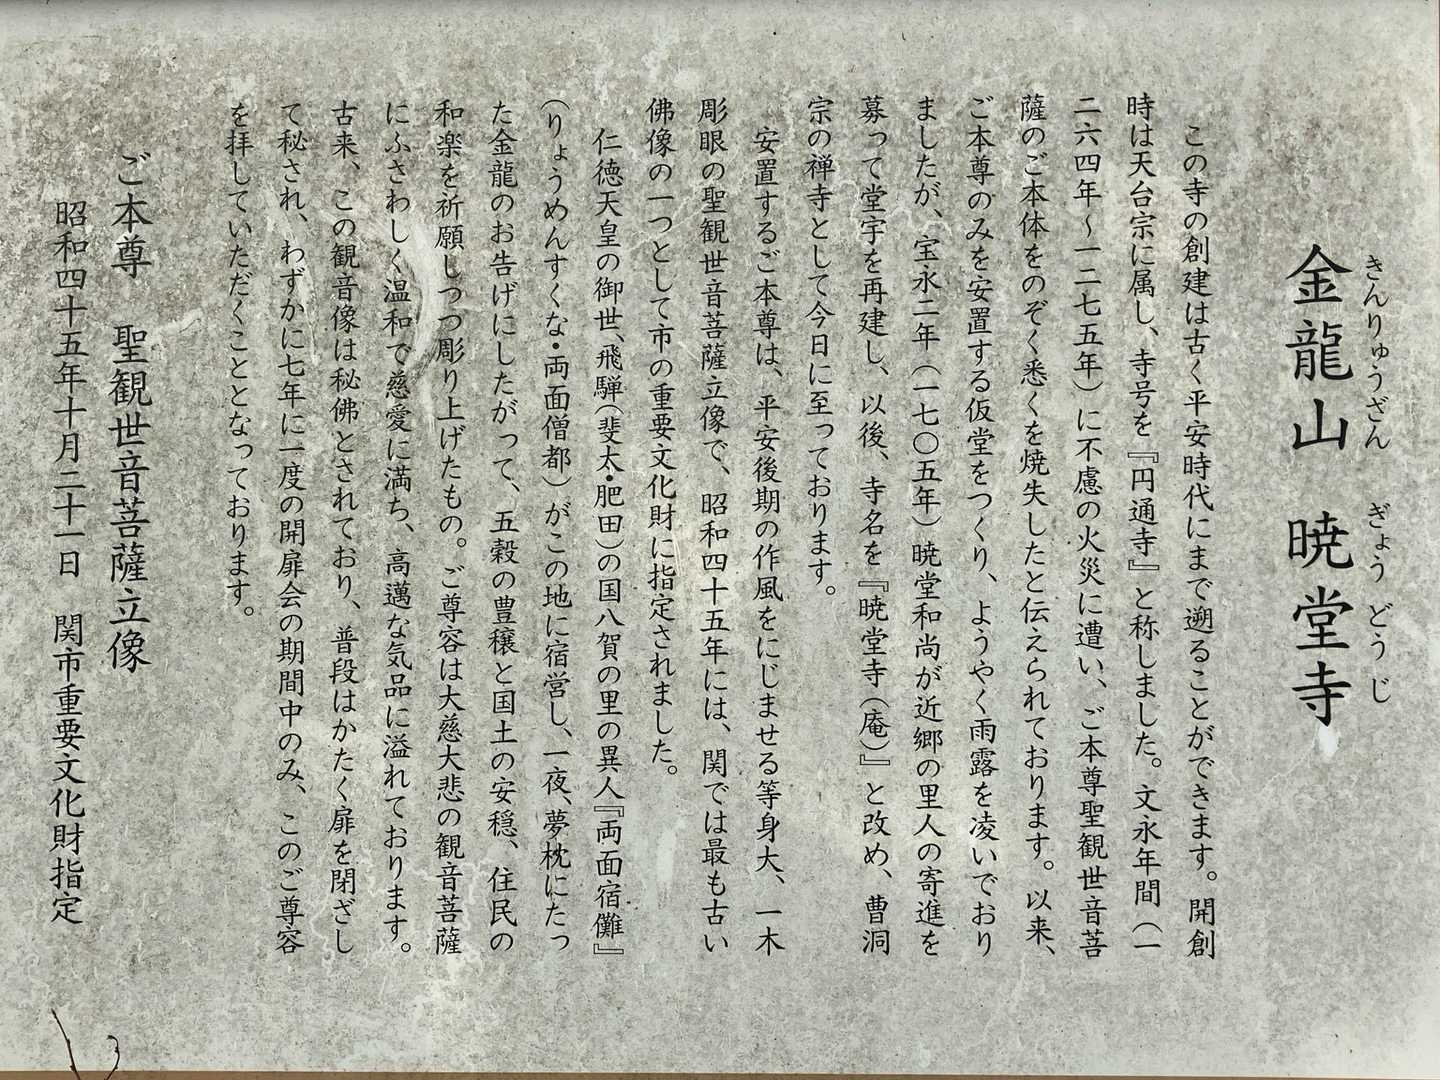 きんりゅうざん　ぎょうどうじ
金龍山　暁堂寺
この寺の創建は古く平安時代にまで遡ることができます。開創
時は天台宗に属し、寺号を『円通寺』と称しました。文永年間（一
二六四年～一二七五年）に不慮の火災に遭い、ご本尊聖観世音菩
薩のご本体をのぞく悉くを焼失したと伝えられております。以来、
ご本尊のみを安置する仮堂をつくり、ようやく雨露を凌いでおり
ましたが、宝永二年（一七〇五年）暁堂和尚が近郷の里人の寄進を
募って堂宇を再建し、以後、寺名を『暁堂寺（庵）』と改め、曹洞
宗の禅寺として今日に至っております。
安置するご本尊は、平安後期の作風をにじませる等身大、一木
彫眼の聖観世音菩薩立像で、昭和四十五年には、関では最も古い
佛像の一つとして市の重要文化財に指定されました。
仁徳天皇の御世、飛騨（斐太・肥田）の国八賀の里の異人『両面宿儺』
（りょうめんすくな・両面僧都）がこの地に宿営し、一夜、夢枕にたっ
た金龍のお告げにしたがって、五穀の豊穣と国土の安穏、住民の
和楽を祈願しつつ彫り上げたもの。ご尊容は大慈大悲の観音菩薩
にふさわしく温和で慈愛に満ち、高邁な気品に溢れております。
古来、この観音像は秘佛とされており、普段はかたく扉を閉ざし
て秘され、わずかに七年に一度の開扉会の期間中のみ、このご尊容
を拝していただくこととなっております。
ご本尊　聖観世音菩薩立像
昭和四十五年十月二十一日　関市重要文化財指定